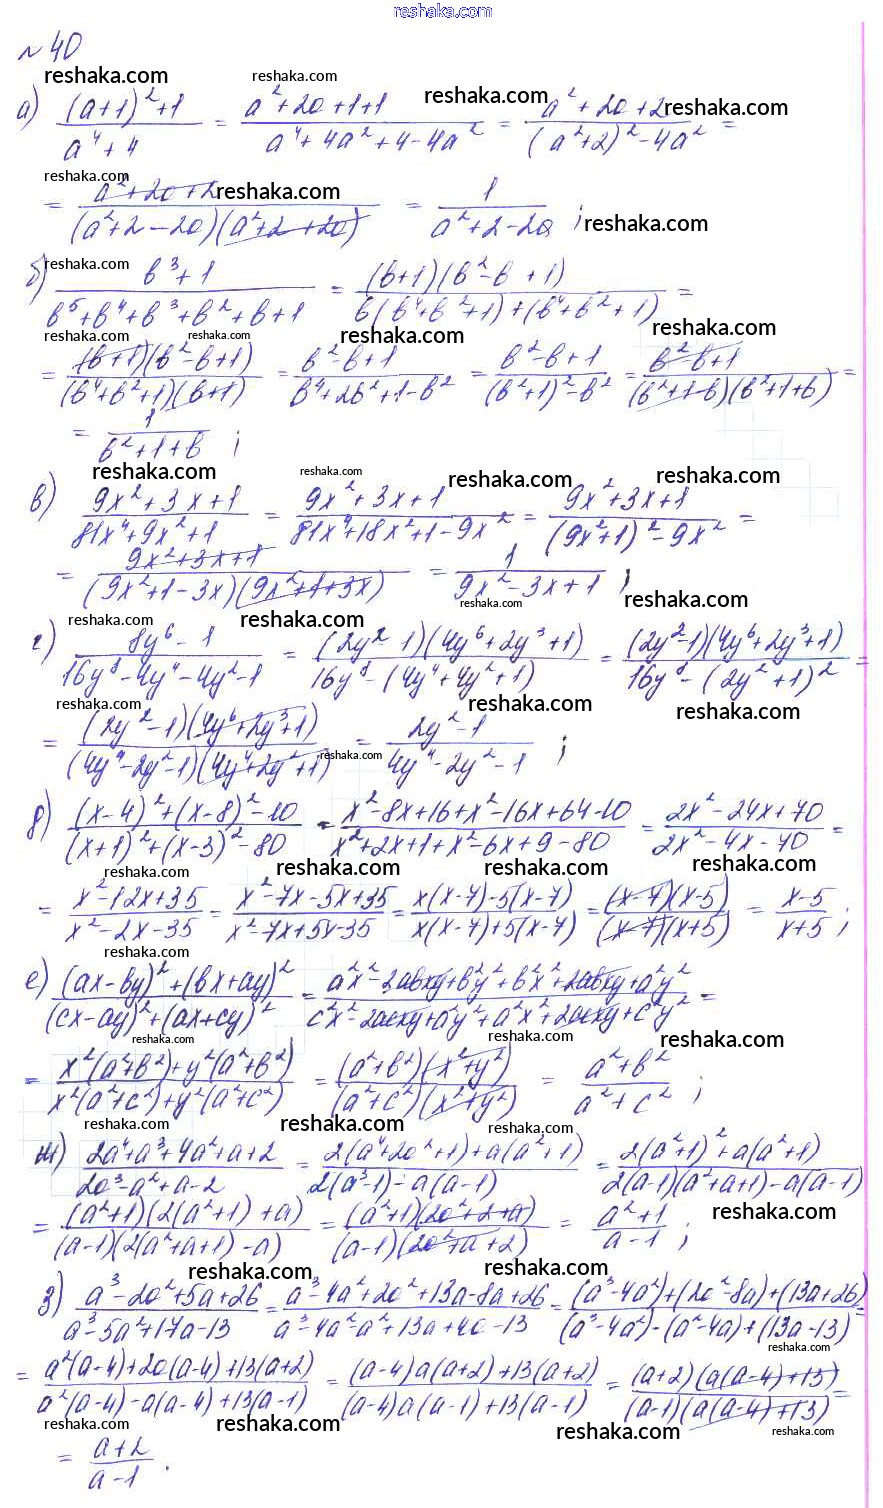 reshaka.com
№ 40
reshaka.com reshaka.com reshaka.com reshaka.com
а) ((a+1)²+1)/(a⁴+4) = (a²+2a+1+1)/(a⁴+4a²+4-4a²) = (a²+2a+2)/((a²+2)²-4a²) =
reshaka.com reshaka.com reshaka.com
= (a²+2a+2)/((a²+2-2a)(a²+2+2a)) = 1/(a²+2-2a) ;
reshaka.com
б) (b³+1)/(b⁵+b⁴+b³+b²+b+1) = ((b+1)(b²-b+1))/(b(b⁴+b²+1)+(b⁴+b²+1)) =
reshaka.com reshaka.com reshaka.com reshaka.com
= ((b+1)(b²-b+1))/((b⁴+b²+1)(b+1)) = (b²-b+1)/(b⁴+2b²+1-b²) = (b²-b+1)/((b²+1)²-b²) = (b²-b+1)/((b²+1-b)(b²+1+b)) =
= 1/(b²+1+b) ;
reshaka.com reshaka.com reshaka.com reshaka.com
в) (9x²+3x+1)/(81x⁴+9x²+1) = (9x²+3x+1)/(81x⁴+18x²+1-9x²) = (9x²+3x+1)/((9x²+1)²-9x²) =
= (9x²+3x+1)/((9x²+1-3x)(9x²+1+3x)) = 1/(9x²-3x+1) ;
reshaka.com reshaka.com reshaka.com reshaka.com
г) (8y⁶-1)/(16y⁸-4y⁴-4y²-1) = ((2y²-1)(4y⁶+2y³+1))/(16y⁸-(4y⁴+4y²+1)) = ((2y²-1)(4y⁶+2y³+1))/(16y⁸-(2y²+1)²) =
reshaka.com reshaka.com reshaka.com
= ((2y²-1)(4y⁶+2y³+1))/((4y⁴-2y²-1)(4y⁴+2y²+1)) = (2y²-1)/(4y⁴-2y²-1) ;
reshaka.com
д) ((x-4)²+(x-8)²-10)/((x+1)²+(x-3)²-80) = (x²-8x+16+x²-16x+64-10)/(x²+2x+1+x²-6x+9-80) = (2x²-24x+70)/(2x²-4x-70) =
reshaka.com reshaka.com reshaka.com reshaka.com
= (x²-12x+35)/(x²-2x-35) = (x²-7x-5x+35)/(x²-7x+5x-35) = (x(x-7)-5(x-7))/(x(x-7)+5(x-7)) = ((x-7)(x-5))/((x-7)(x+5)) = (x-5)/(x+5) ;
reshaka.com
е) ((ax-by)²+(bx+ay)²)/((cx-ay)²+(ax+cy)²) = (a²x²-2abxy+b²y²+b²x²+2abxy+a²y²)/(c²x²-2acxy+a²y²+a²x²+2acxy+c²y²) =
reshaka.com reshaka.com reshaka.com
= (x²(a²+b²)+y²(a²+b²))/(x²(a²+c²)+y²(a²+c²)) = ((a²+b²)(x²+y²))/((a²+c²)(x²+y²)) = (a²+b²)/(a²+c²) ;
reshaka.com reshaka.com reshaka.com
ж) (2a⁴+a³+4a²+a+2)/(2a³-a²+a-2) = (2(a⁴+2a²+1)+a(a²+1))/(2(a³-1)-a(a-1)) = (2(a²+1)²+a(a²+1))/(2(a-1)(a²+a+1)-a(a-1))
= ((a²+1)(2(a²+1)+a))/((a-1)(2(a²+a+1)-a)) = ((a²+1)(2a²+2+a))/((a-1)(2a²+a+2)) = (a²+1)/(a-1) ;
reshaka.com
reshaka.com reshaka.com
з) (a³-2a²+5a+26)/(a³-5a²+17a-13) = (a³-4a²+2a²+13a-8a+26)/(a³-4a²a²+13a+4a-13) = ((a³-4a²)+(2a²-8a)+(13a+26))/((a³-4a²)-(a²-4a)+(13a-13)) =
reshaka.com
= (a²(a-4)+2a(a-4)+13(a+2))/(a²(a-4)-a(a-4)+13(a-1)) = ((a-4)a(a+2)+13(a+2))/((a-4)a(a-1)+13(a-1)) = ((a+2)(a(a-4)+13))/((a-1)(a(a-4)+13)) =
reshaka.com reshaka.com reshaka.com reshaka.com
= (a+2)/(a-1) .